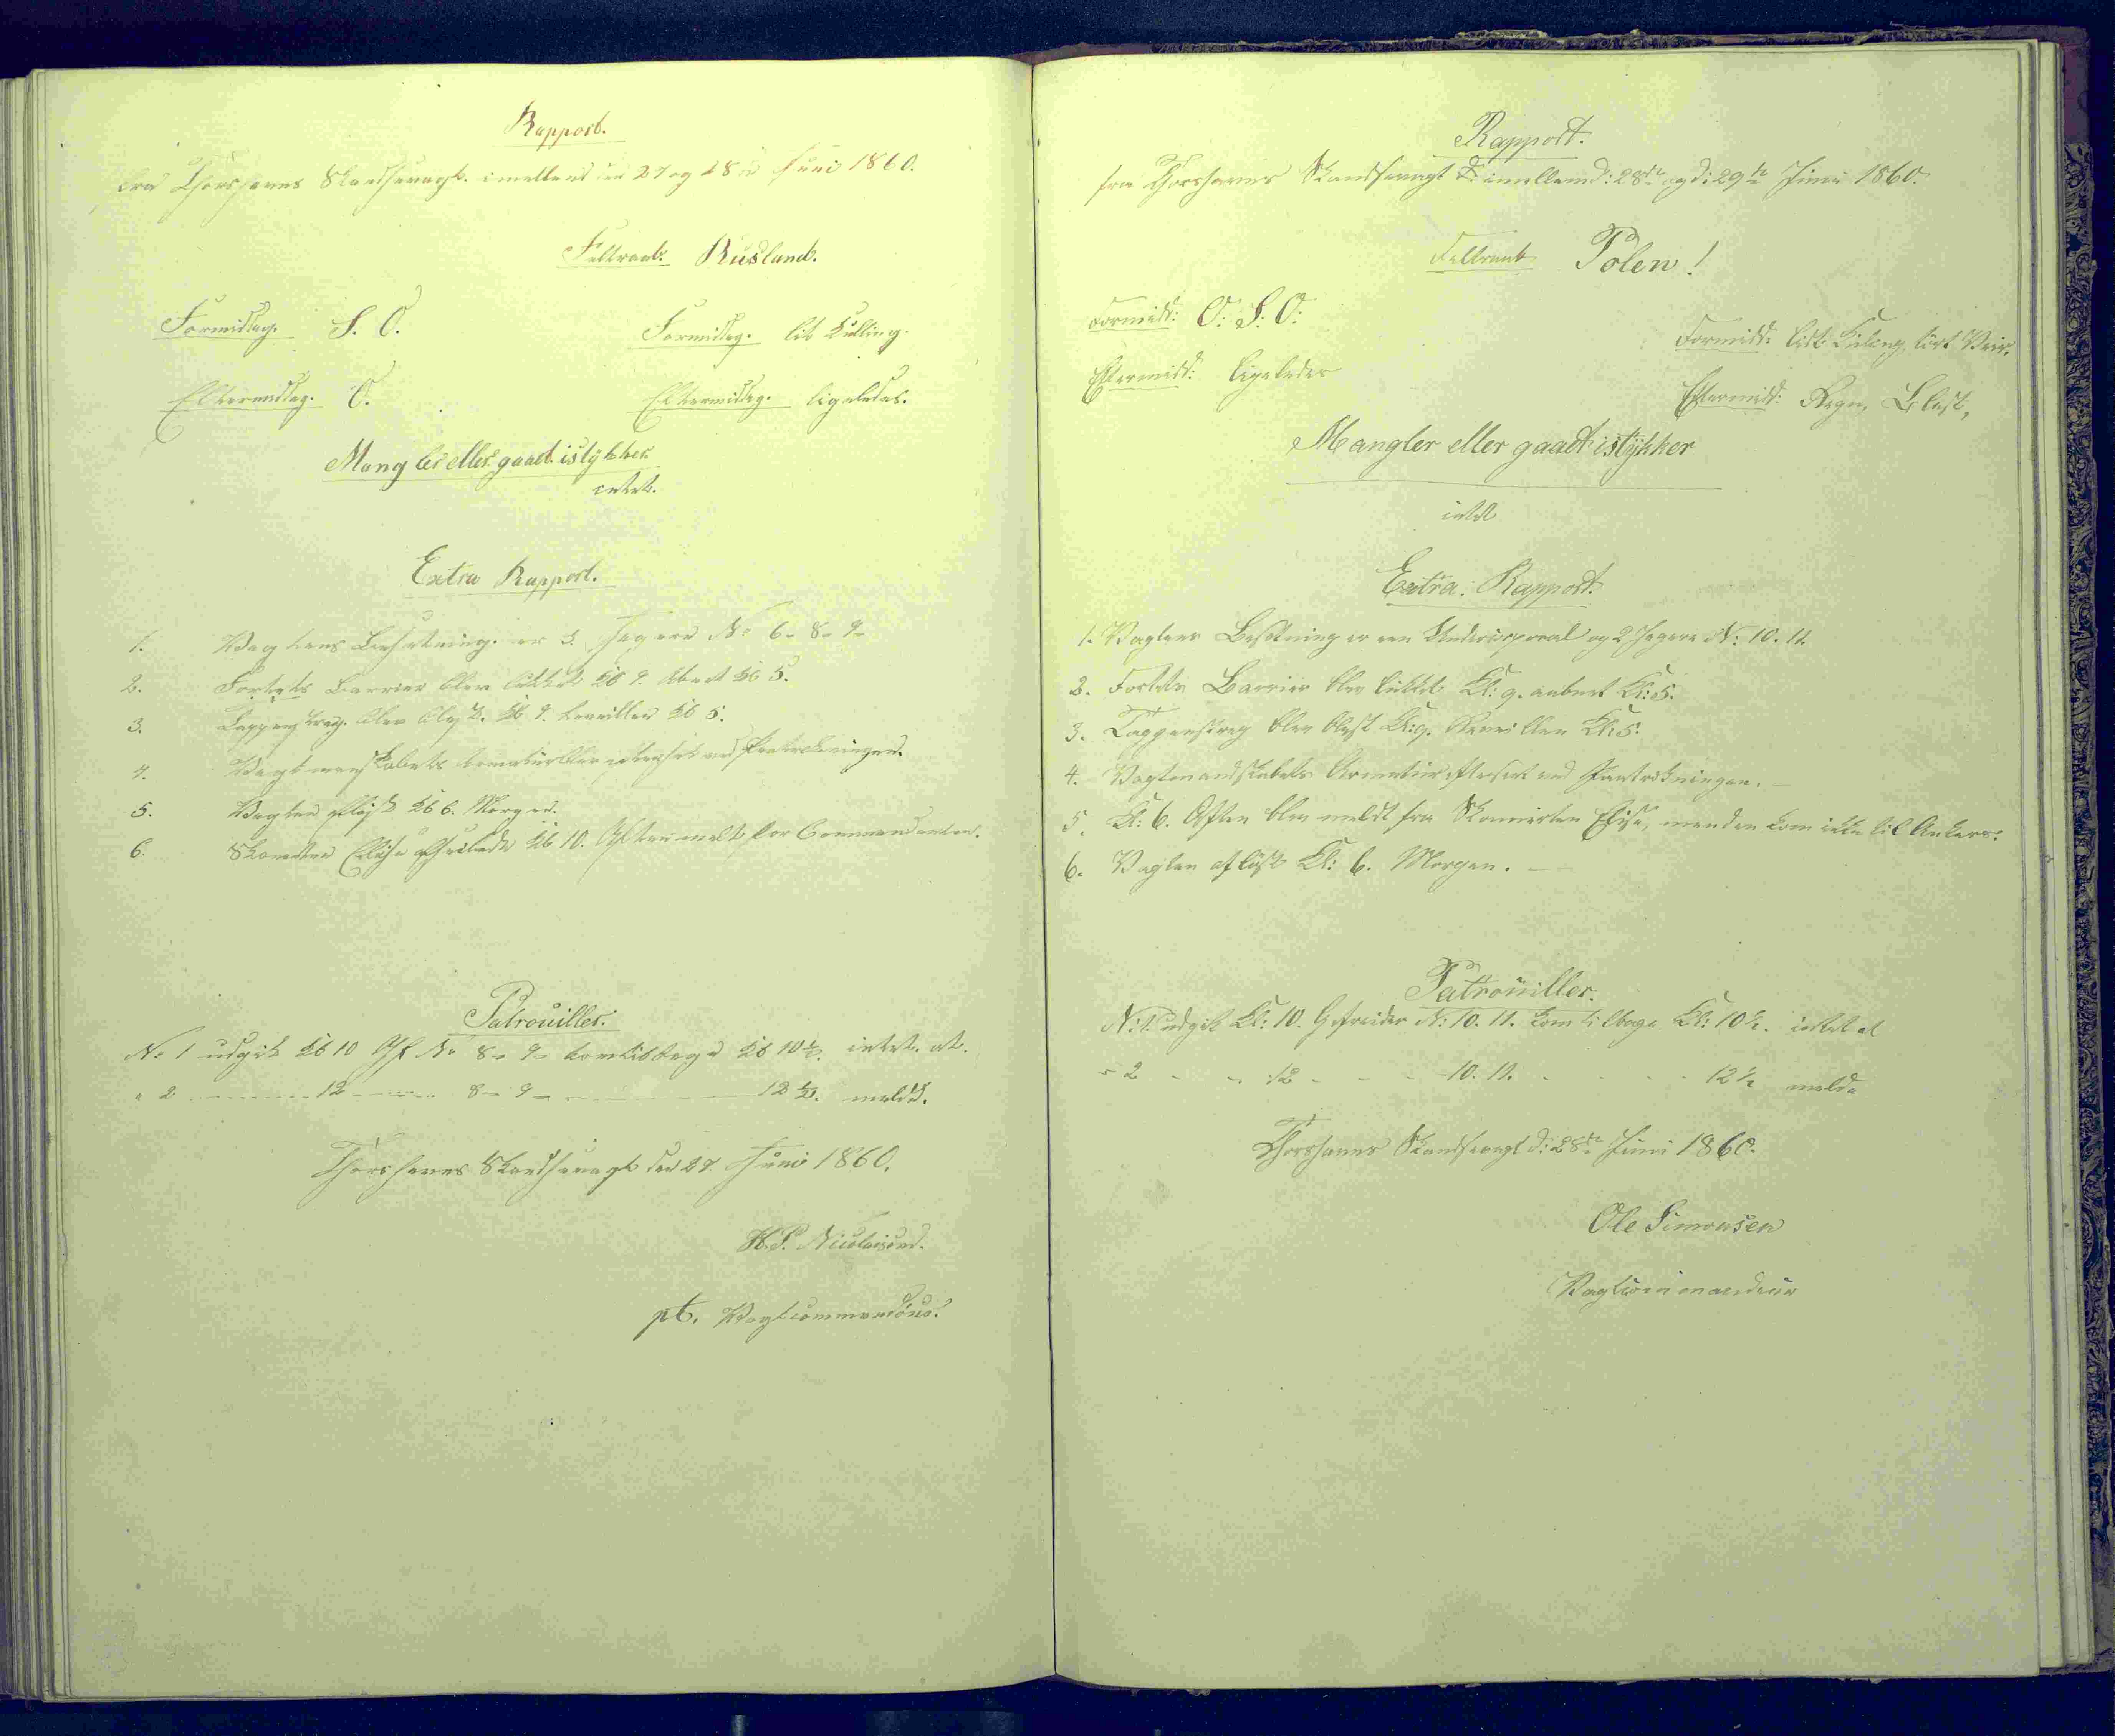 Rapport.
fra Thorshavns Skandsevagt. imellem den 27 og 28 d Juni 1860.
Feltraab. Rusland.
Formiddag. S. O. Formiddag. lit Kulling.
Eftermiddag. O. Eftermiddag. ligeledes.
Mangler eller gaaet istykker.
intet.
Extra Rapport.
1. Vagtens Besetning. er 3 Jægere No 6- 8- 9-
2. Fortets Barrier blev lukket Kl 9. Abnet Kl 5.
3. Tappenstreg. blev blæst. Kl 9. Reveillen Kl 5.
4. Vagtmandskabets Armatur efterset ved Fratrædningen.
5. Vagten afløst Kl 6. Morgen.
6. Skonerten Elise Kl 10. Aften melt for Commandanten.
Patrouiller.
No 1 udgik Kl 10 Gf. No 8- 9- kom tilbage Kl 10½. intet. at.
" 2 12 8- 9- 12½. melde.
Thorshavns Skandsevagt den 27. Juni 1860.
H.P. Nicolaisen.
pt. Vagtcommandeur.
Rapport.
fra Thorshavns Skandsevagt imellem d: 28de og d: 29de Juni 1860.
Feltraab Polen!
Formidd: O: S: O: Formidd: lidt Kuling, tørt Veir,
Eftermidd: ligeledes Eftermidd: Regn, Blæst,
Mangler eller gaaet istykker
intet
Extra: Rapport.
1. Vagtens Besætning er een Undercorporal og 2 Jægere N: 10. 11.
2. Fortets Barrier blev lukket Kl: 9. aabnet Kl: 5.
3. Tappenstreg blev blæst Kl: 9. Reveillen Kl: 5.
4. Vagtmandskabets Armatur efterseet ved Fratrædningen. –
5. Kl: 6. Aften blev meldt fra Skonnerten Elise, men den kom ikke til Ankers.
6. Vagten afløst Kl: 6. Morgen. –
Patrouiller.
N: 1. udgik Kl: 10. Gefreider N: 10. 11. kom tilbage Kl: 10½. intet at
" 2 - - 12 - - - 10. 11. - - - 12½ melde
Thorshavns Skandsevagt d: 28de Juni 1860.
Ole Simonsen
Vagtcommandeur